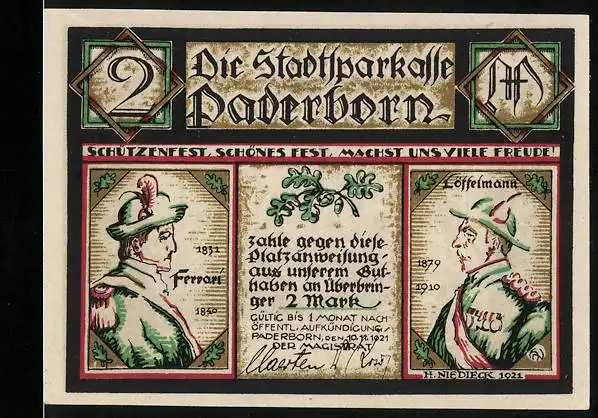 2
Die Stadtsparkasse
Paderborn
M
SCHÜTZENFEST, SCHÖNES FEST, MACHST UNS VIELE FREUDE!
1831
Ferrari
1850
zahle gegen diese
Platzanweisung
aus unserem Gut-
haben an Überbrin-
ger 2 Mark
GÜLTIG BIS 1 MONAT NACH
ÖFFENTL. AUFKÜNDIGUNG
PADERBORN, DEN, 10.11.1921
DER MAGISTRAT
Löffelmann
1879
1910
H. NIEDIECK 1921